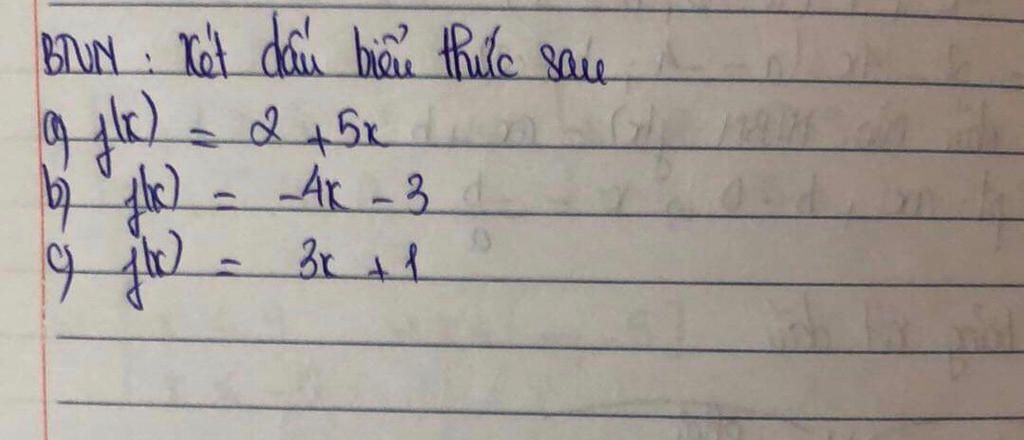 BTVN : Xét dấu biểu thức sau
a) f(x) = 2 + 5x
b) f(x) = -4x - 3
c) f(x) = 3x + 1